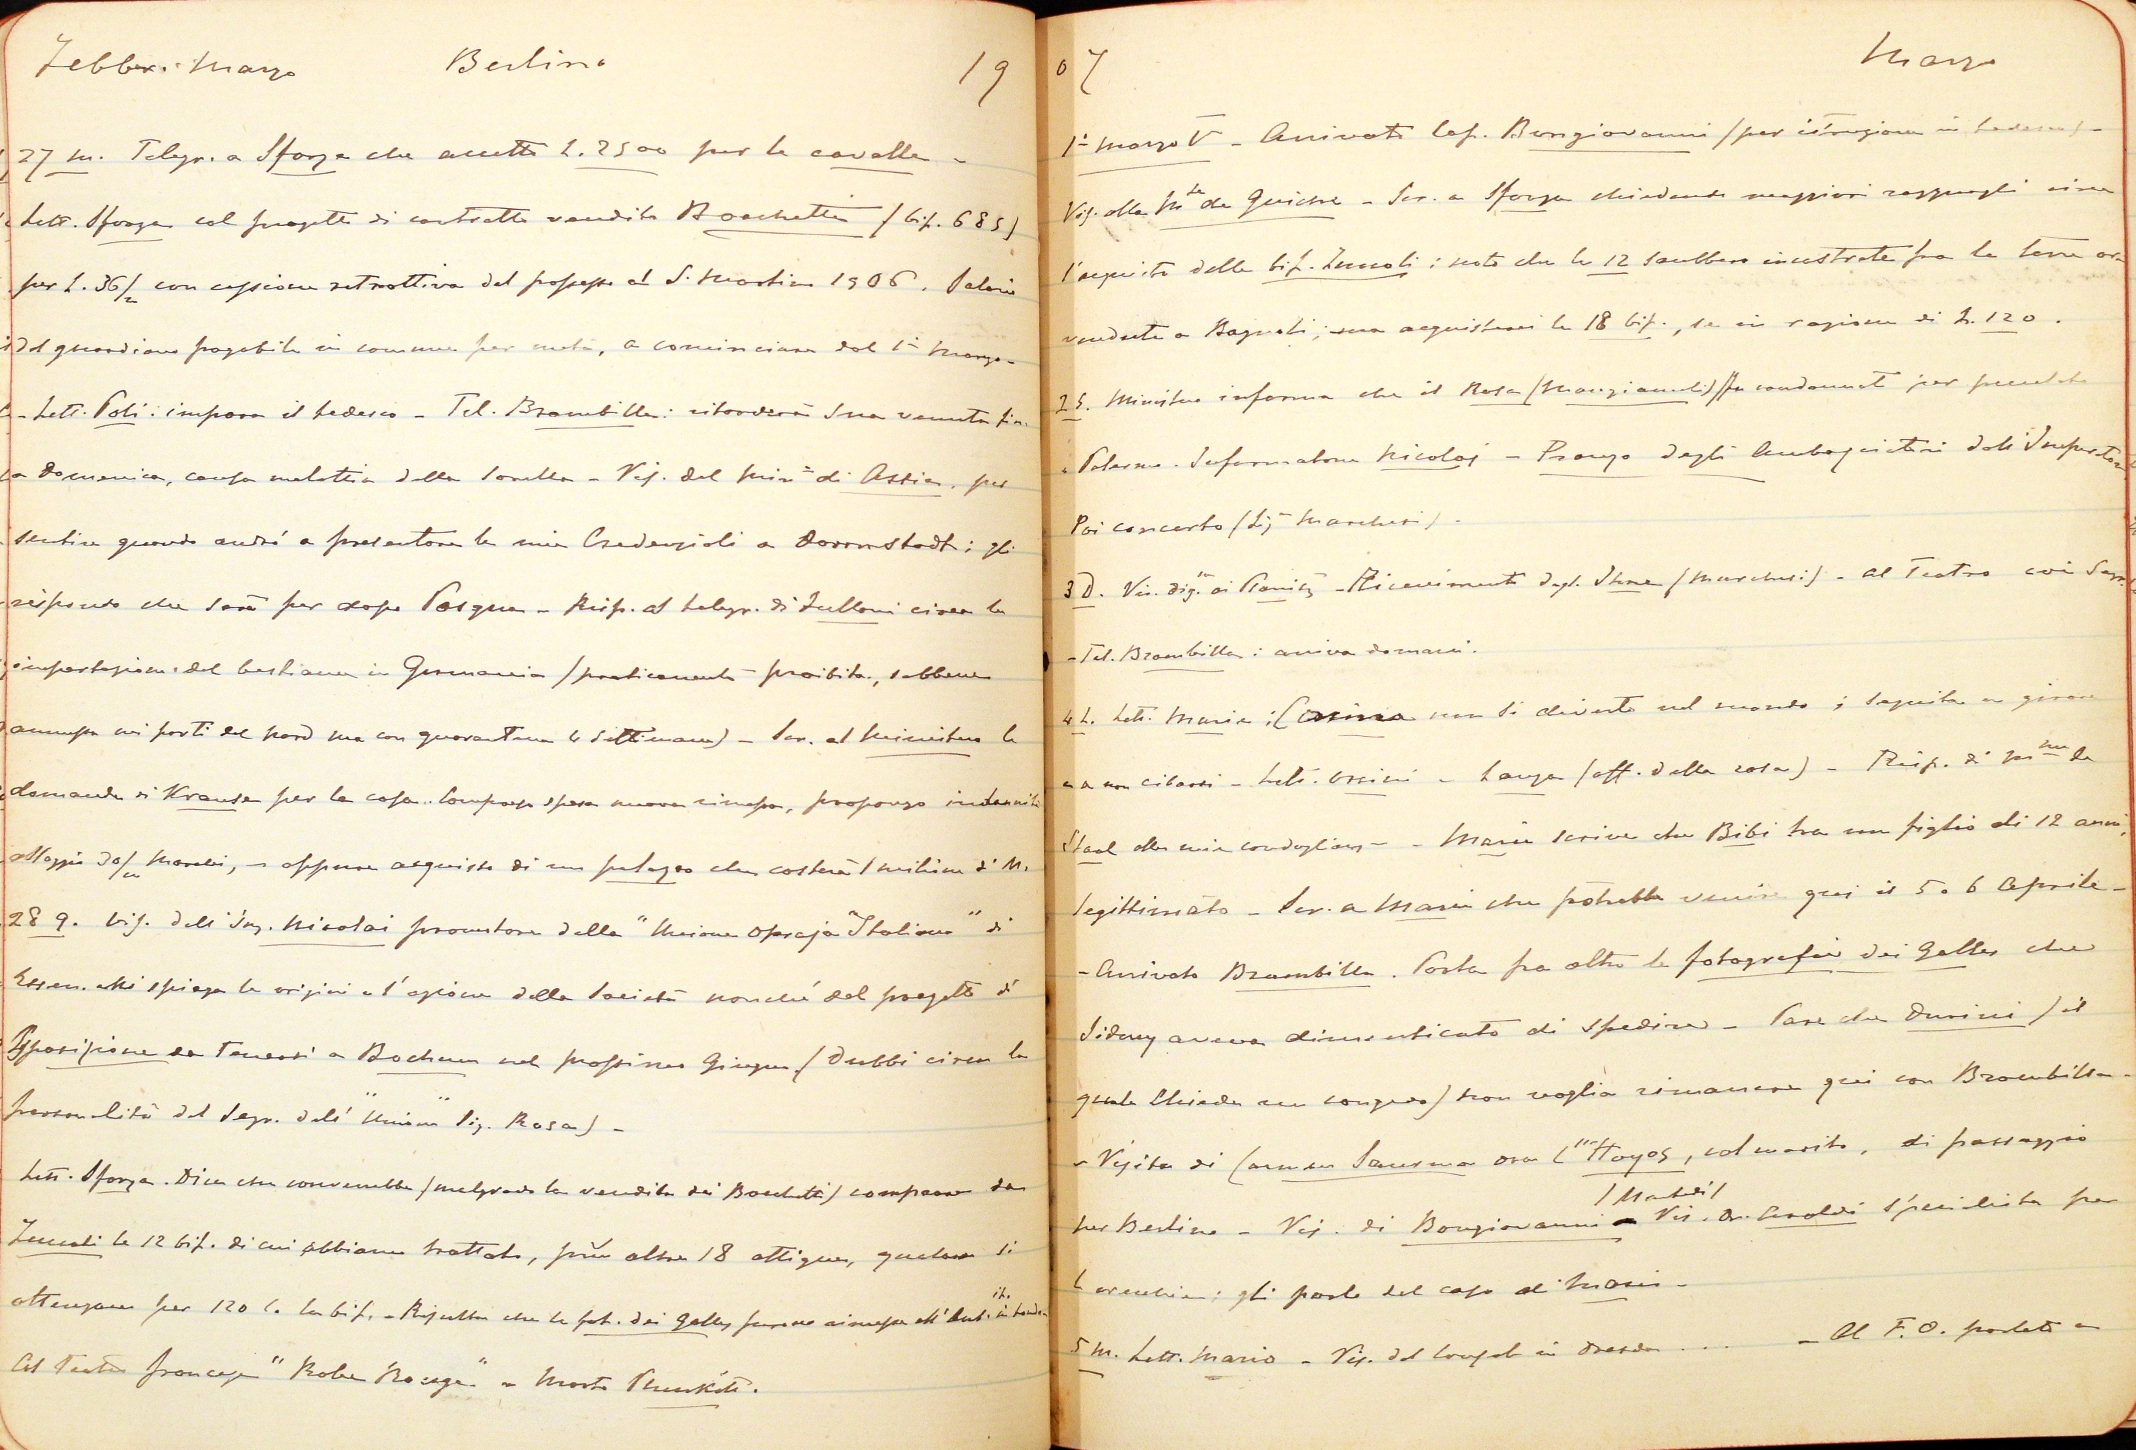 Febbr. Marzo Berlino 19
27 M. Telegr. a Sforza che accetto L. 2500 per la cavalla -
Lett. Sforza col progetto di contratto vendita Boschetti (bif. 685)
per L. 36/m con cessione retroattiva del possesso al S. Martino 1906. Salario
del guardiano pagabile in comune per metà, a cominciare dal 1° Marzo -
- Lett. Poli: impara il tedesco - Tel. Brambilla: ritarderà sua venuta fin
a domenica, causa malattia della sorella - Vis. del Min° di Assia, per
sentire quando andrò a presentare le mie Credenziali a Darmstadt; gli
rispondo che sarà per dopo Pasqua - Risp. al telegr. di Tulloni circa la
importazione del bestiame in Germania (praticamente proibita, sebbene
ammessa nei porti del nord ma con quarantena 4 settimane) - Scr. al Ministero la
domanda di Krause per la casa. Compresa spesa nuova rimessa, propongo indennità
alloggio 30/m Marchi, - oppure acquisto di un palazzo che costerà 1 milione di M.
28 G. Vis. dell'Ing. Nicolai promotore della "Unione Operaja Italiana" di
Essen. Mi spiega le origini e l'azione della Società nonché del progetto di
Esposizione da tenersi a Bochum nel prossimo Giugno (Dubbi circa la
personalità del Segr. dell' "Unione" Sig. Rosa) -
Lett. Sforza. Dice che converrebbe (malgrado la vendita dei Boschetti) comprare da
le 12 bif. di cui abbiamo trattato, più altre 18 attigue, qualora si
ottengano per 120 L. la bif. - Risulta che le fot. dei Galles furono rimesse all'Amb. it. in Londra
Al Teatro francese "Robe Rouge" - Morto
07 Marzo
1° Marzo V - Arrivato Cap. Bongiovanni (per istruzione in tedesco) -
Vis. alla de Guiche - Scr. a Sforza chiedendo maggiori ragguagli circa
l'acquisto delle bif. ; noto che le 12 sarebbero incastrate fra le terre ora
vendute a Bagnoli; ma acquisterei le 18 bif., se in ragione di L. 120.
2 S. Ministero informa che il Rosa (Mangiameli) fu condannato per peculato
a Palermo. Informatone Nicolaj - Pranzo degli Ambasciatori dall'Imperatore
Poi concerto (Sig. Marchesi) -
3 D. Vis. - Ricevimento degl. Ihne (Marchesi) - Al Teatro coi
- Tel. Brambilla: arriva domani.
4 L. Lett. Maria: Cosima non si diverte nel mondo; seguita a girare
e a non cibarsi - Lett. Orsini - Lanza (aff. della casa) - Risp. di Mme de
Stael alle mie condoglianze - Maria scrive che Bibi ha un figlio di 12 anni,
legittimato - Scr. a Maria che potrebbe venire qui il 5 o 6 Aprile -
- Arrivato Brambilla. Porta fra altro le fotografie dei Galles che
Sidney aveva dimenticato di spedire - Pare che Durini (il
quale chiede un congedo) non voglia rimanere qui con Brambilla -
- Visita di Carmen Saurma ora Css Hoyos, col marito, di passaggio
per Berlino - Vis. di Bongiovanni (Martedì) - Vis. Dr. specialista per
l'orecchio; gli parlo del caso di Mario -
5 M. Lett. Mario - Vis. del Console in Dresda ... - Al F.O. parlato a